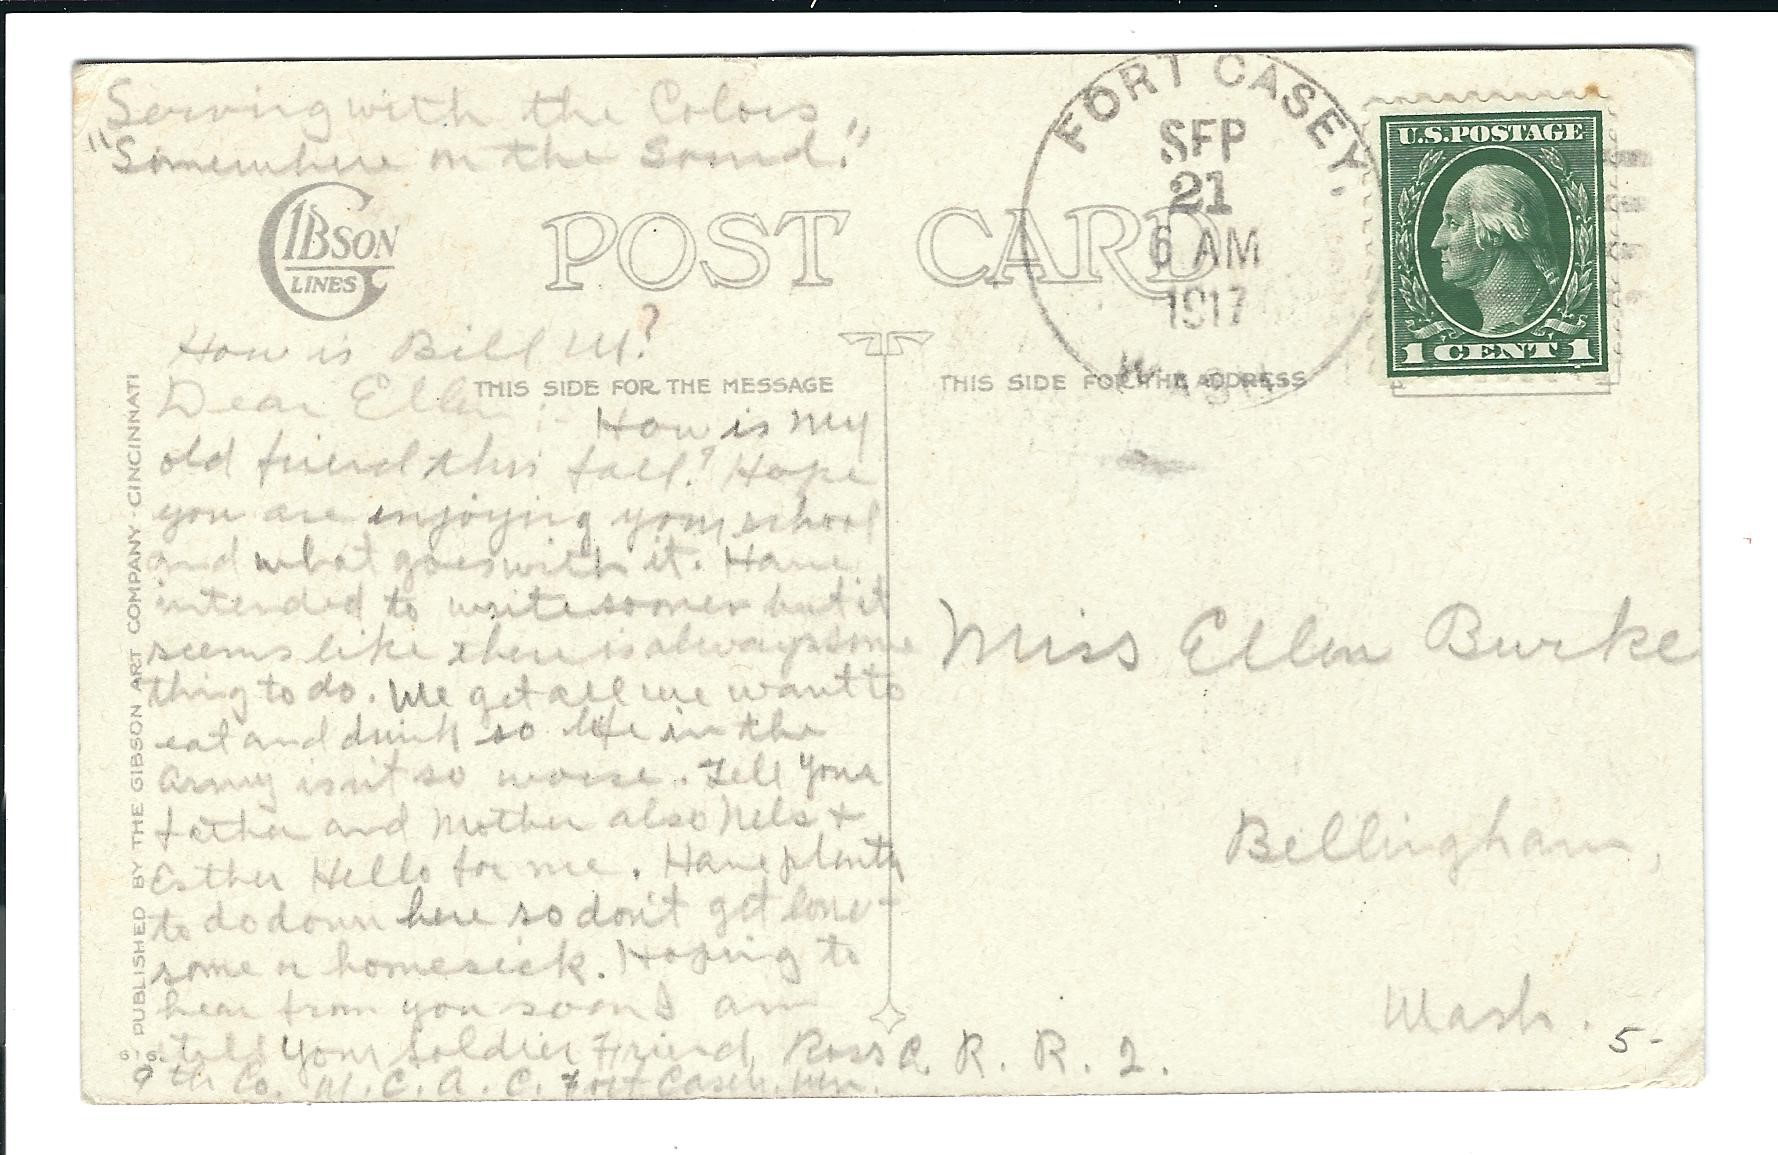 Serving with the Colors,
"Somewhere on the Sound."
GIBSON
LINES
POST CARD
FORT CASEY,
SEP
21
6 AM
1917
WASH.
U.S.POSTAGE
1 CENT 1
How is Bill M?
THIS SIDE FOR THE MESSAGE
THIS SIDE FOR THE ADDRESS
Dear Ellen:- How is my
old friend this fall? Hope
you are enjoying your school
and what goes with it. Have
intended to write sooner but it
seems like there is always some
thing to do. We get all we want to
eat and drink so life in the
Army isn't so worse. Tell your
Father and Mother also Nels +
Esther Hello for me. Have plenty
to do down here so don't get lone-
some or homesick. Hoping to
hear from you soon I am
your Soldier Friend, Ross C.
9th Co. C. A. C. Fort Casey, Wn.
PUBLISHED BY THE GIBSON ART COMPANY-CINCINNATI
Miss Ellen Burke
Bellingham,
Wash.
R. R. 2.
5-